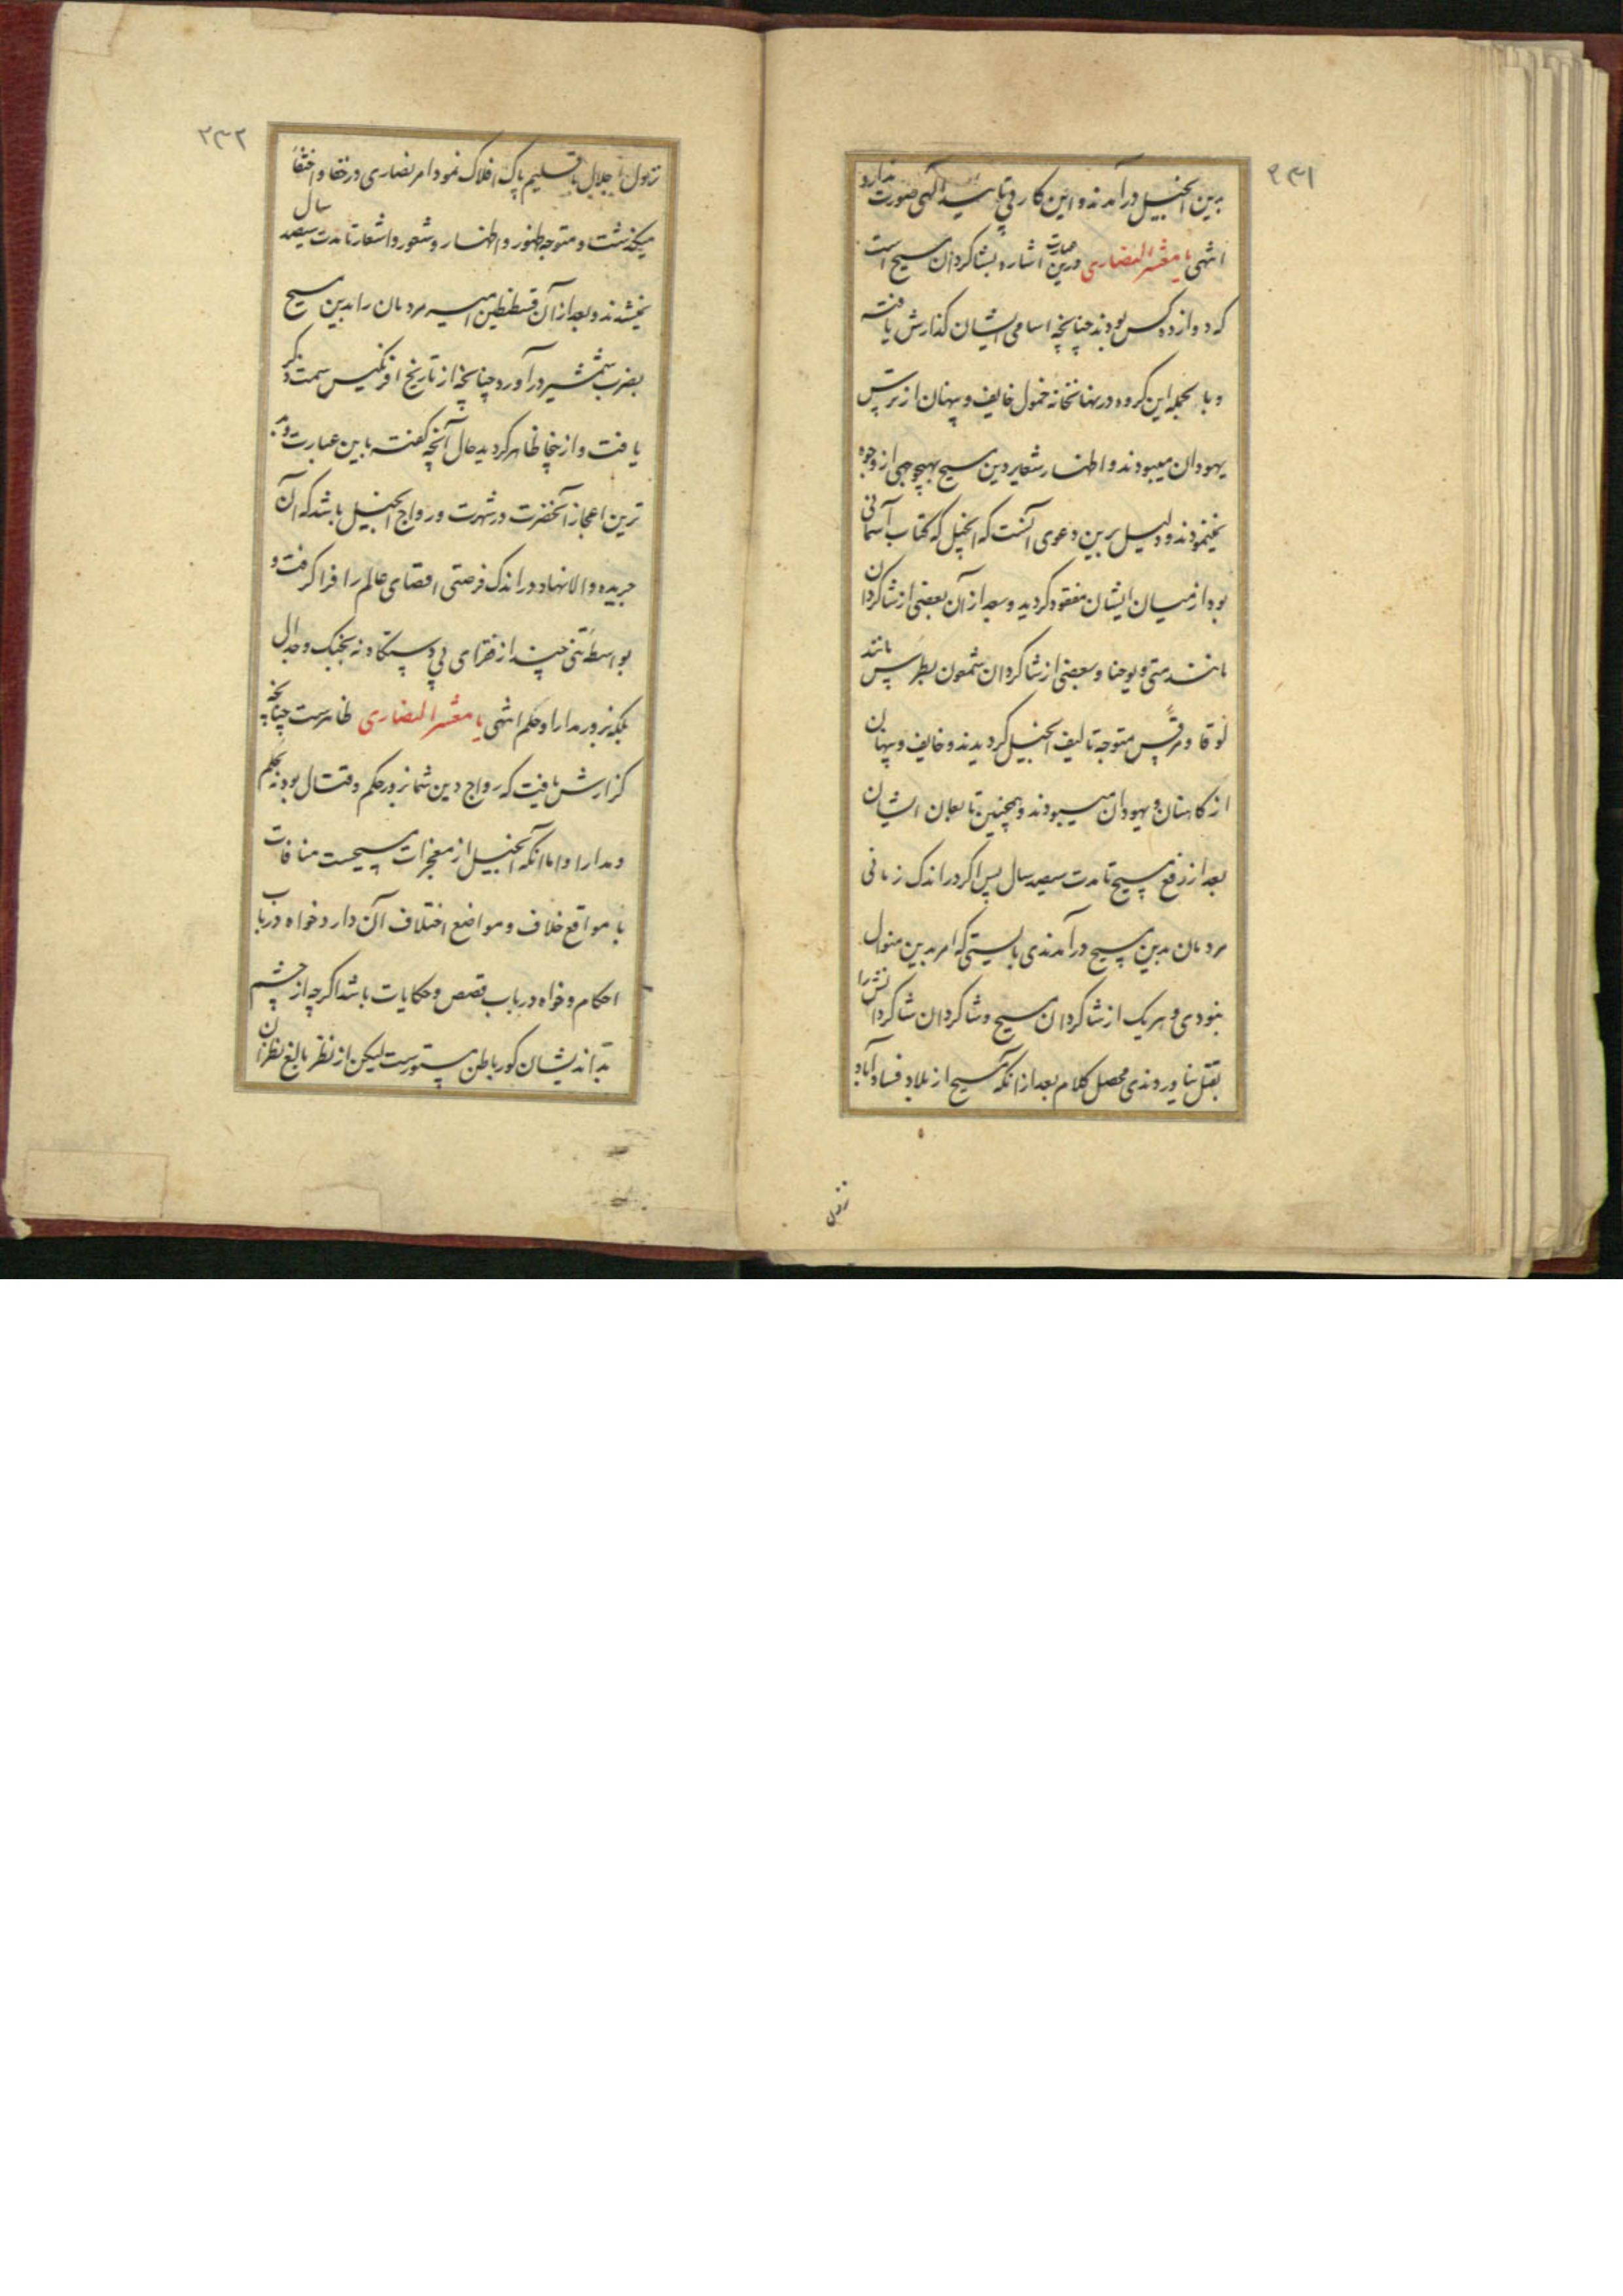 برین انجیل درآمدند و این کار بی تایید الهی صورت ندارد
انتهی یا معشر النصاری درین عبارت اشاره بشاکردان مسیح است
که دوازده کس بودند چنانچه اسامی ایشان کذارش یافته
و بالجمله این کروه در نهانخانه خمول خایف و پنهان از ترس
یهودان میبودند و اظهار شعایر دین مسیح بهیچ وجهی از وجوه
نمینمودند و دلیل برین دعوی آنست که انجیل که کتاب آسمانی
بود از میان ایشان مفقود کردید و بعد از آن بعضی از شاکردان
مانند متی و یوحنا و بعضی از شاکردان شمعون بطرس مانند
لوقا و مرقس متوجه تالیف انجیل کردیدند و خایف و پنهان
از کاهنان و یهودان میبودند و همچنین تابعان ایشان
بعد از رفع مسیح تا مدت سیصد سال پس اکر در اندک زمانی
مردمان بدین مسیح درآمدندی بایستی که امر بدین منوال
نبودی و هر یک از شاکردان مسیح و شاکردان شاکردانش را
بقتل نیاوردندی محصل کلام بعد از انکه مسیح از بلاد فساد آباد
نزول
۲۳۲
نزول اجلال باقلیم پاک افلاک نمود امر نصاری در خفا و اختفا
میکذشت و متوجه ظهور و اظهار و شعور و اشعار تا مدت سیصد سال
نمیشدند و بعد از آن قسطنطین امیر مردمان را بدین مسیح
بضرب شمشیر درآورد چنانچه از تاریخ افرنکیس سمت ذکر
یافت و از خیا ظاهر کردید حال آنچه کفته باین عبارت و
ترین اعجاز آنحضرت در شهرت و رواج انجیل باشد که آن
جریده والانهاد در اندک فرصتی اقصای عالم را فرا کرفت و
بواسطه تنی چند از فقرای بی دستکاه نه بجنک و جدال
بلکه بزور مدارا و حکم انتهی یا معشر النصاری ظاهرست چنانچه
کزارش یافت که رواج دین شما بزور حکم و قتال بود نه بحکم
و مدارا و اما انکه انجیل از معجزات مسیحست منافات
با مواقع خلاف و مواضع اختلاف آن دارد خواه در باب
احکام و خواه در باب قصص و حکایات باشد اکرچه از چشم
بداندیشان کور باطن مستورست لیکن از نظر بالغ نظران